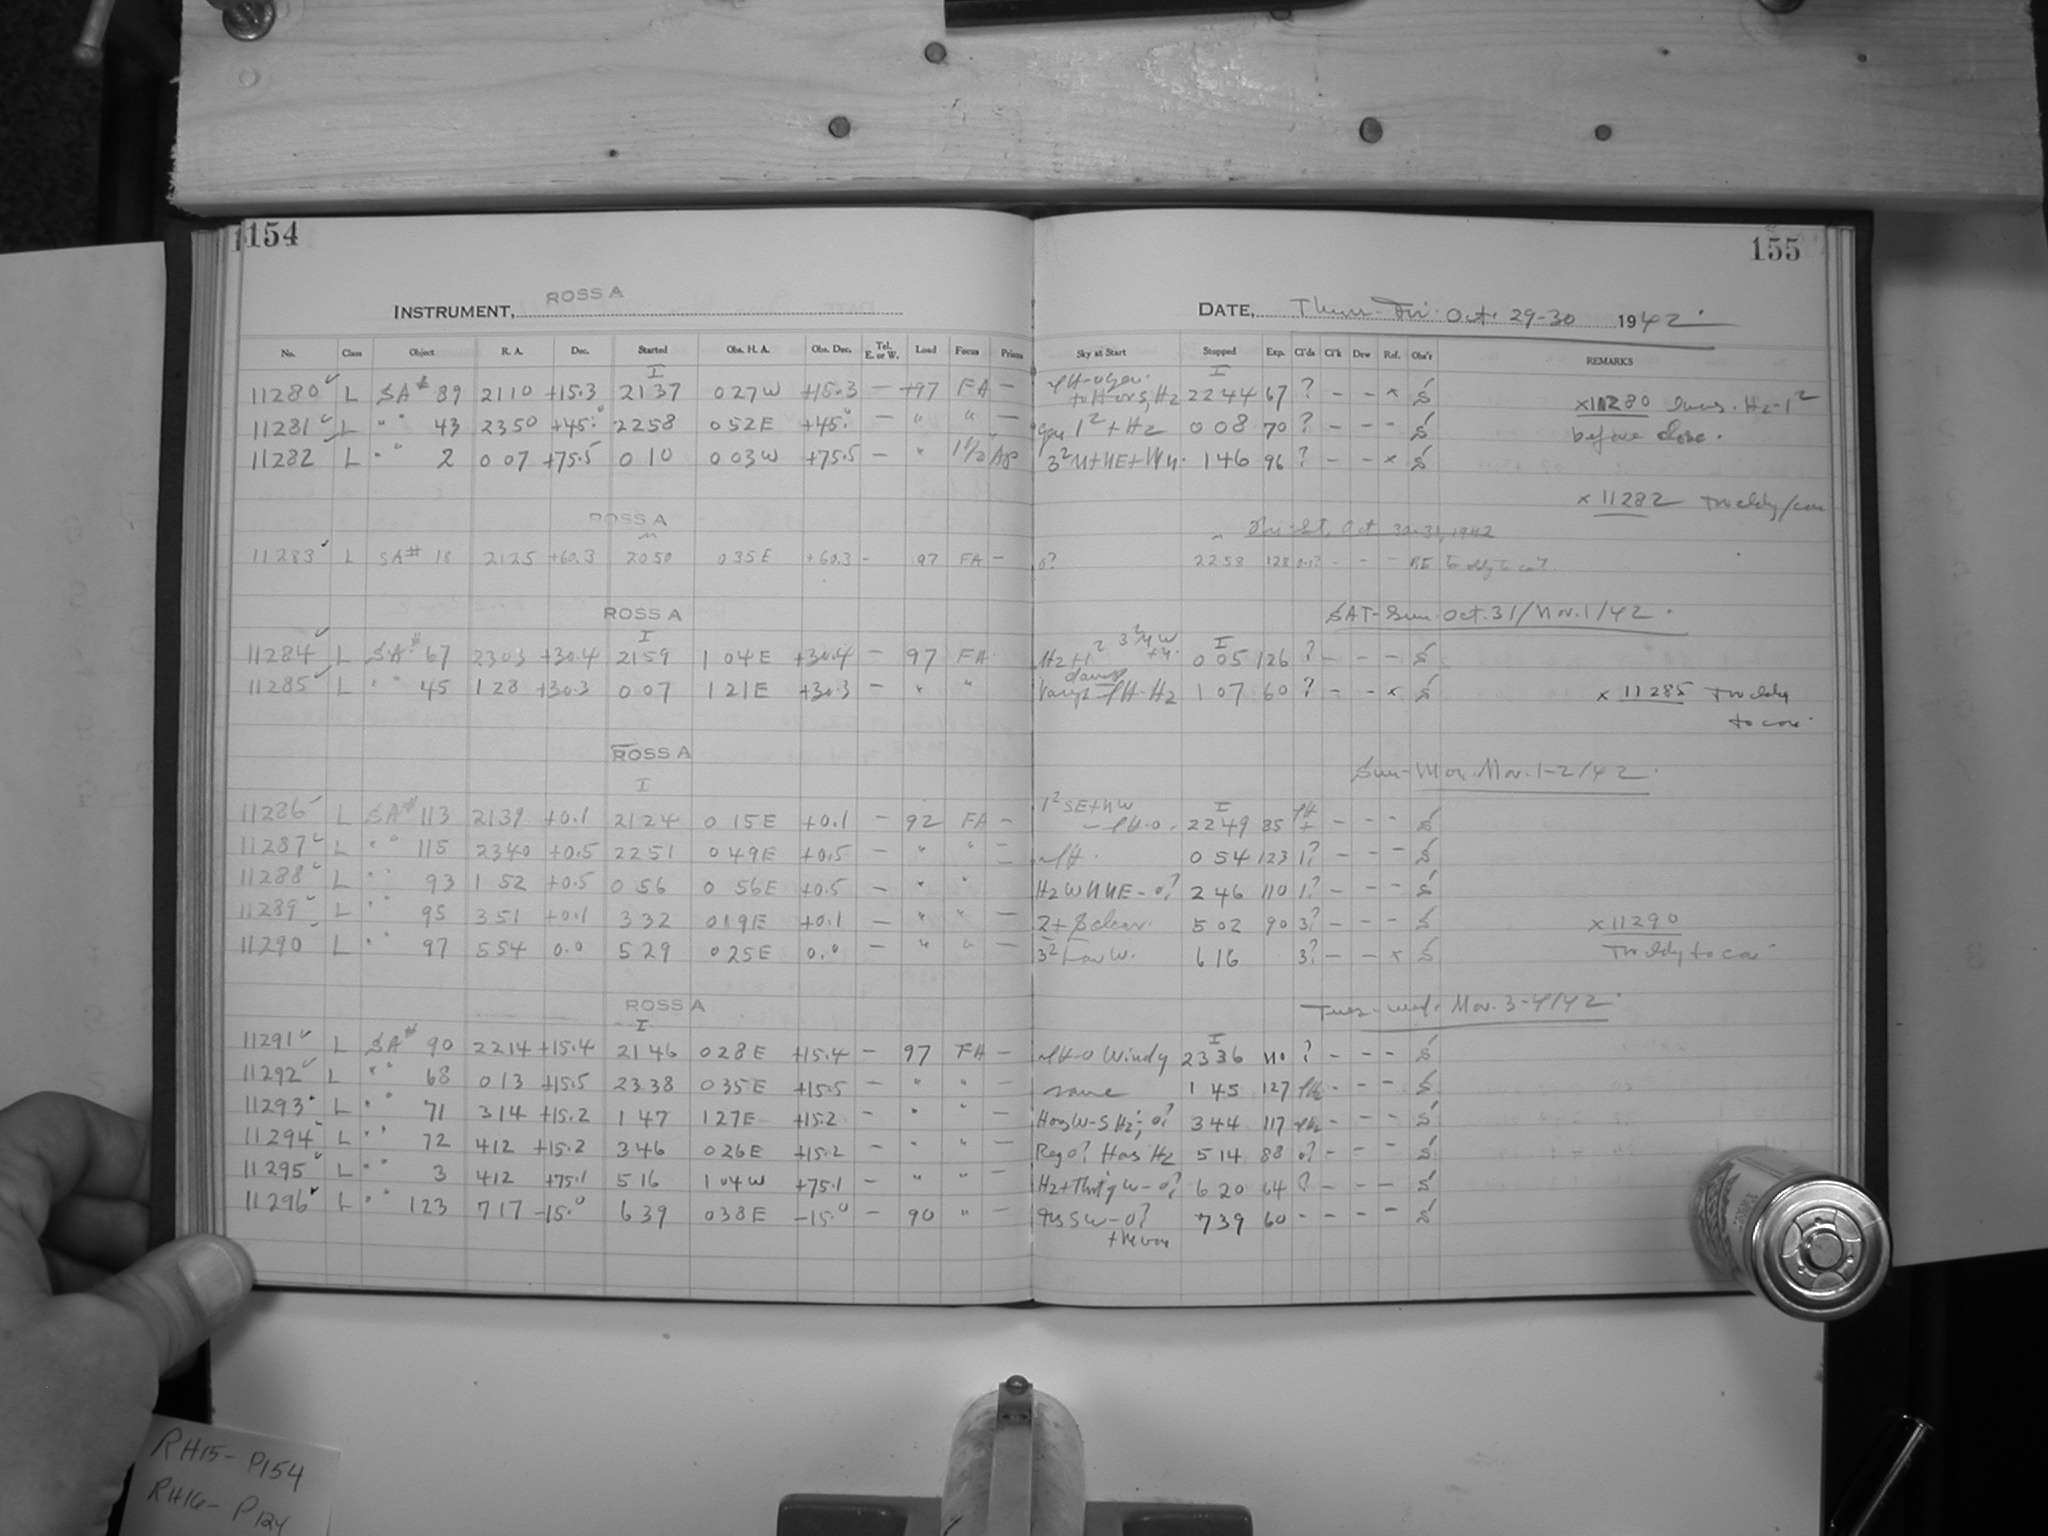 154
155
ROSS A
INSTRUMENT,
DATE, Oct. 29-30 1942
No. Class Object R. A. Dec. Started Obs. H. A. Obs. Dec. Tel. E. or W. Load Focus Prism Sky at Start Stopped Exp. Cl'ds Cl'k Dew Ref. Obs'r REMARKS
I I
11280 L SA# 89 2110 +15.3 2137 027W +15.3 - +97 FA - 2244 67 ? - - x S x11280 Hz-1²
11281 L " " 43 2350 +45.0 2258 052E +45.0 - " " - 1² + Hz 008 70 ? - - - S before close.
11282 L " " 2 007 +75.5 010 003W +75.5 - " 1½ 146 96 ? - - x S
x 11282
ROSS A
Oct 30-31, 1942
11283 L SA# 18 2125 +60.3 2050 035E +60.3 - 97 FA - 0? 2258 128 - - -
ROSS A
SAT-Sun. Oct. 31/Nov. 1/42
I I
11284 L SA# 67 2303 +30.4 2159 1 04E +30.4 - 97 FA 005 126 ? - - - S
11285 L " " 45 128 +30.3 007 121E +30.3 - " " 107 60 ? - - x S x 11285
ROSS A
Sun-Mon. Nov. 1-2/42
I I
11286 L SA# 113 2139 +0.1 2124 015E +0.1 - 92 FA - 1² SE+NW 2249 85 - - - S
11287 L " " 115 2340 +0.5 2251 049E +0.5 - " " - 054 123 1? - - - S
11288 L " " 93 152 +0.5 056 0 56E +0.5 - " " 246 110 1? - - - S
11289 L " " 95 351 +0.1 332 019E +0.1 - " " - 502 90 3? - - - S x11290
11290 L " " 97 554 0.0 529 025E 0.0 - " " - 3² Low W. 616 3? - - x S
ROSS A
Tues-Wed. Nov. 3-4/42
I I
11291 L SA# 90 2214 +15.4 2146 028E +15.4 - 97 FA - Windy 2336 110 ? - - - S
11292 L " " 68 013 +15.5 2338 035E +15.5 - " " - same 145 127 - - - S
11293 L " " 71 314 +15.2 147 127E +15.2 - " " - 344 117 - - - S
11294 L " " 72 412 +15.2 346 026E +15.2 - " " - Has Hz 514 88 0? - - - S
11295 L " " 3 412 +75.1 516 104W +75.1 - " " - 620 64 ? - - - S
11296 L " " 123 717 -15.0 639 038E -15.0 - 90 " - 739 60 - - - - S
RH15-P154
RH16-P124